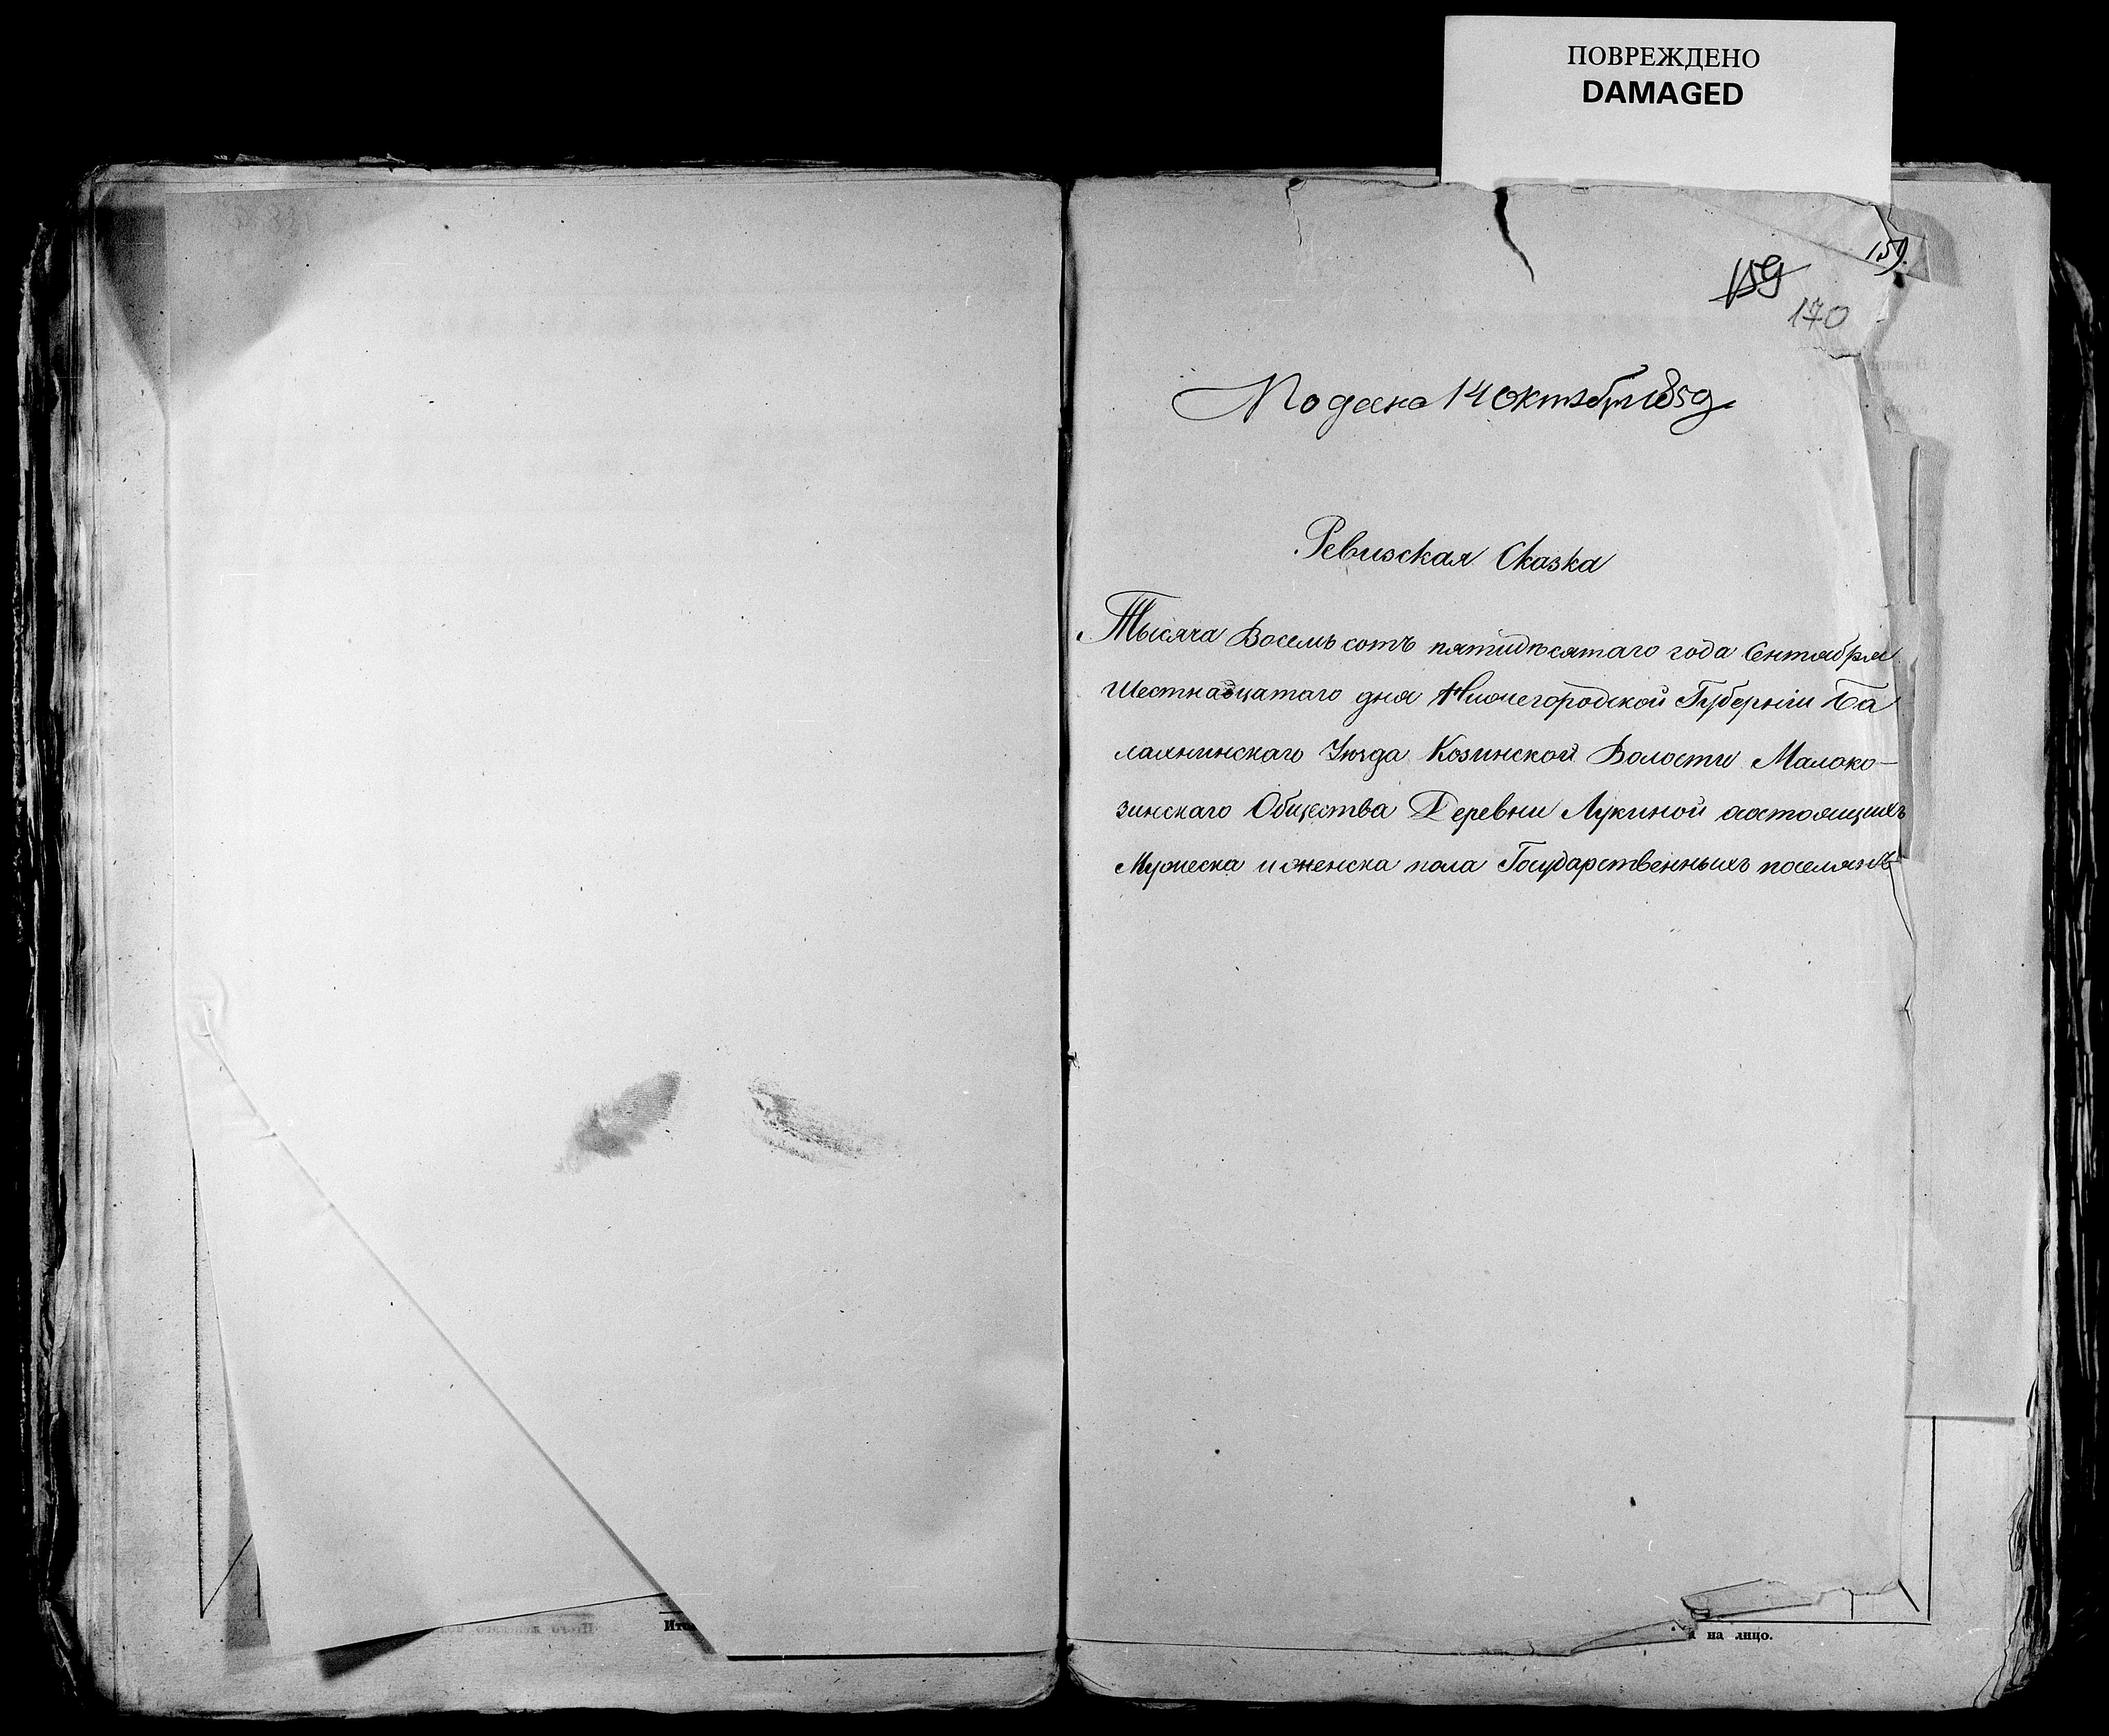 ПОВРЕЖДЕНО
DAMAGED
159.
159
170
Подана 14 октября 1850
Ревизская Сказка
Тысяча Восемь сотъ пятидесятаго года Сентября
Шестнадцатаго дня Нижегородской Губерніи Ба
лахнинскаго Уѣзда Козинской Волости Малоко-
зинскаго Общества Деревни Лукиной состоящихъ
Мужеска и женска пола Государственныхъ поселянъ
Ито
на лицо.